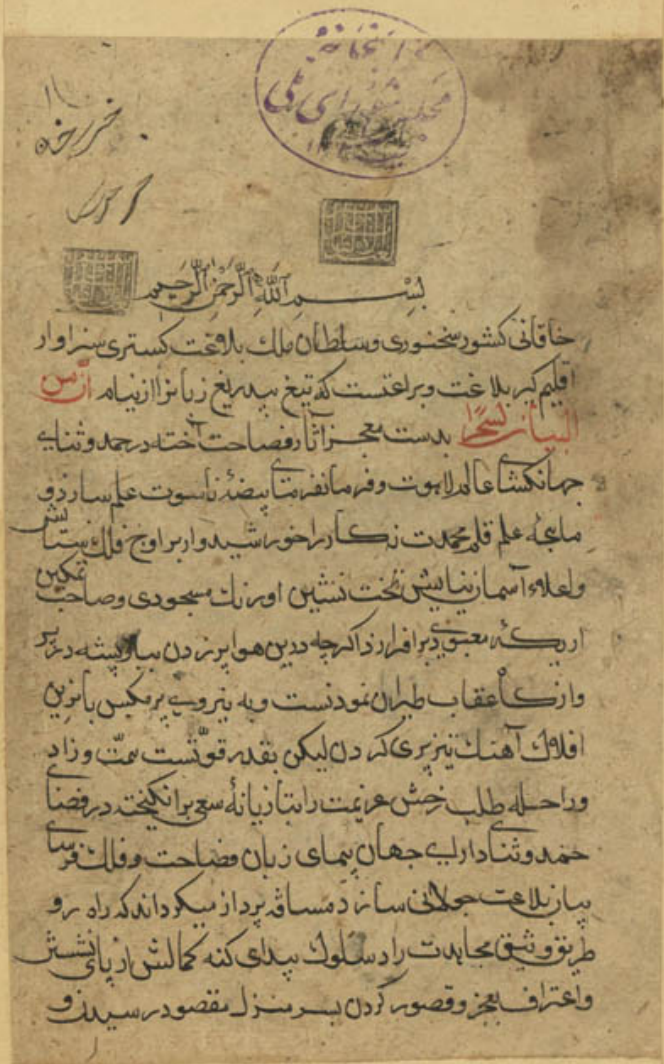 کتابخانه
مجلس شورای ملی
بسم الله الرحمن الرحیم
خاقانی کشور سخنوری و سلطان ملک بلاغت کستری سزاوار
اقلیم کیر بلاغت و براعتست که تیغ بیدریغ زبانرا از نیام انّ من
البیان لسحرا بدست معجز آثار فصاحت آخته در حمد و ثنای
جهانکشای عالم لاهوت و فرمانفرمای بیضهٔ ناسوت علم سازد و
ماهجهٔ علم قلم محمدت نکار را خورشیدوار بر اوج فلک ستایش
و اعلاء آسمان نیایش تخت نشین اورنک مسجودی و صاحب تمکین
اریکهٔ معبودی برافرازد اکرچه درین هوا پر زدن ببال پشه در پر
وازکاه عقاب طیران نمودنست و به نیروی پر مکس با نرین
افلاک آهنک تیزپری کردن لیکن بقدر قوّتست سمت و زاد
و راحله طلب رخش عزیمت را بتازیانهٔ سعی برانکیخته در فضای
حمد و ثنای دارای جهان پیمای زبان فصاحت و فلک فرسای
بیان بلاغت جولانی سازد مسافه پرداز میکرداند که راه رو
طریق وثیق مجاهدت را در سلوک بیدای کنه کمالش از پای نشستن
و اعتراف بعجز و قصور کردن بسر منزل مقصود رسیدن و